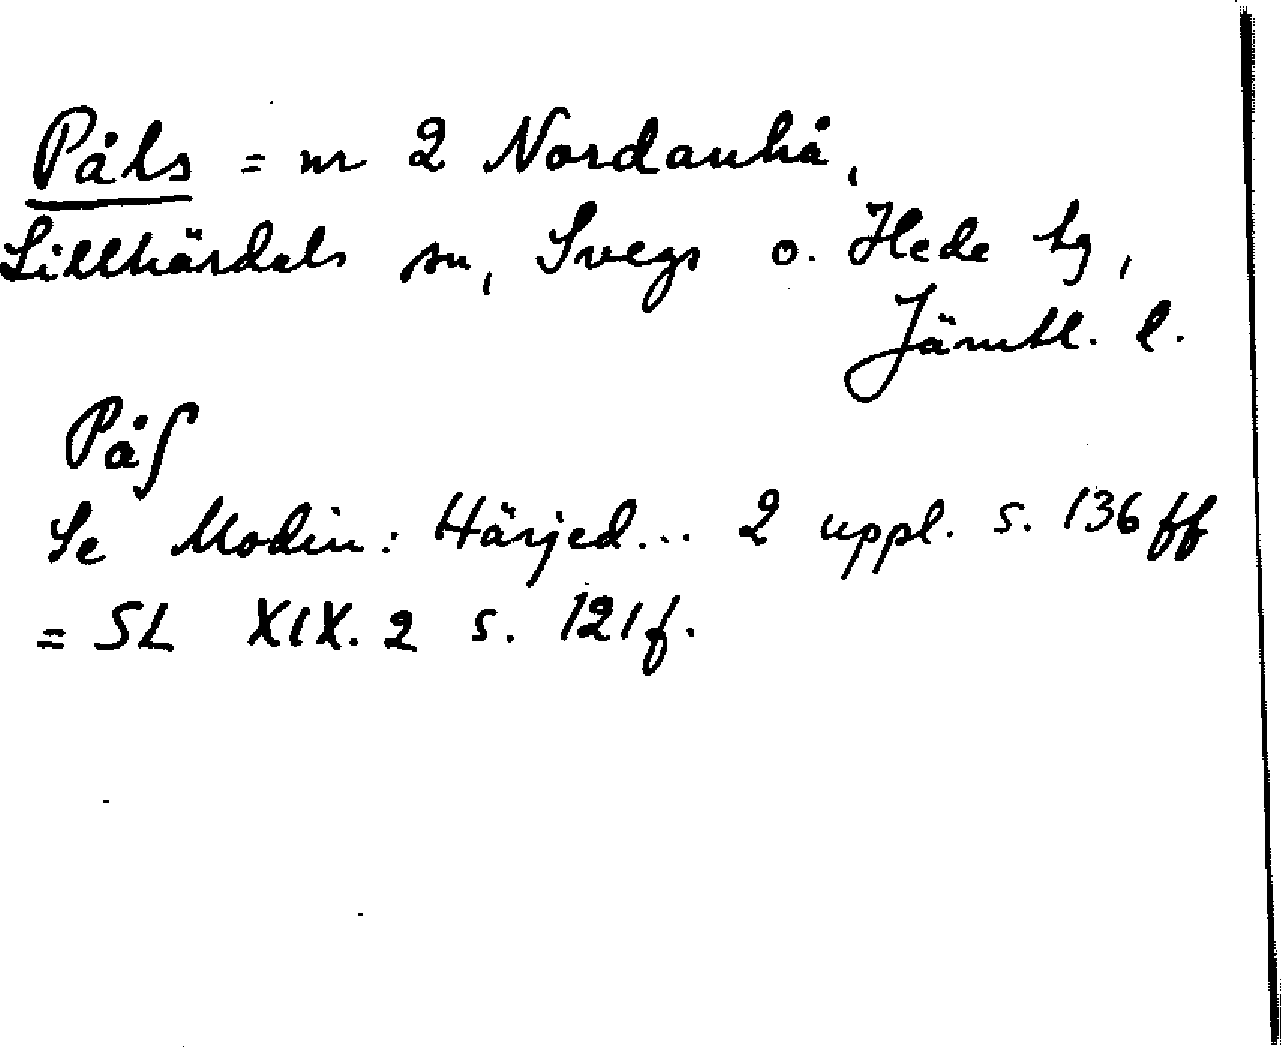 Påls = nr 2 Nordanhå,
Lillhärdals sn, Svegs o. Hede tg,
Jämtl. l.
Påſ
Se Modin: Härjed... 2 uppl. s. 136 ff
= SL XIX. 2 s. 121 f.